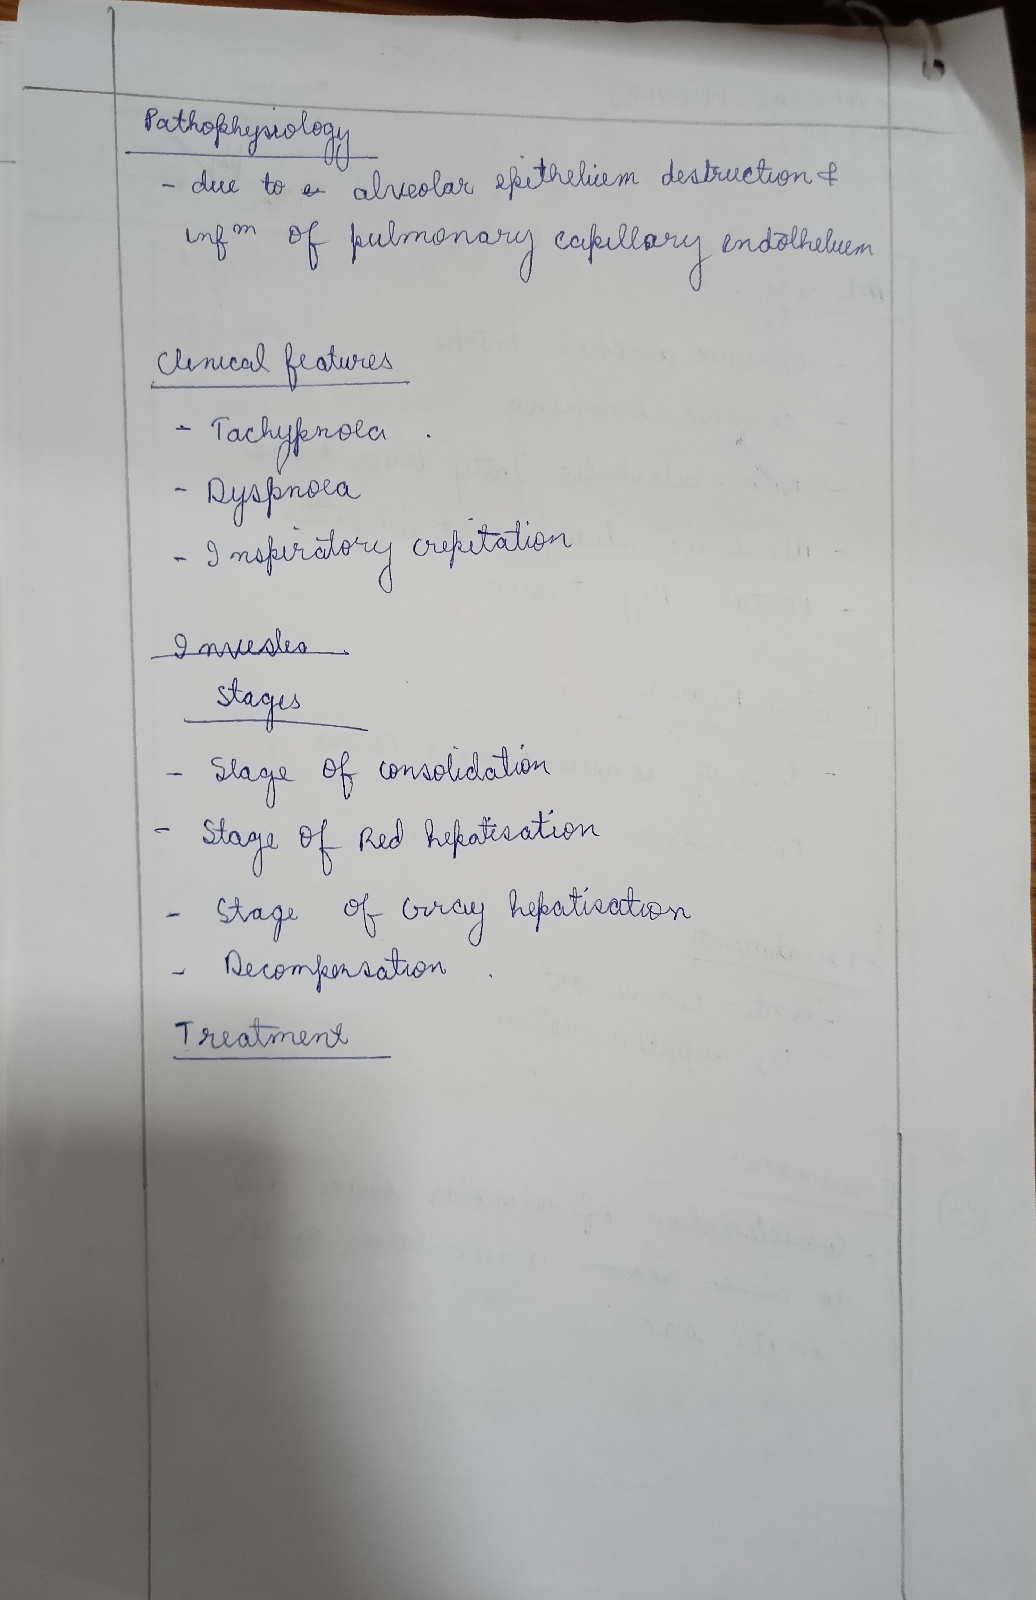 Pathophysiology
- due to alveolar epithelium destruction &
infm of pulmonary capillary endothelium
Clinical features
- Tachypnoea
- Dyspnoea
- Inspiratory crepitation
Stages
- Stage of consolidation
- Stage of Red hepatisation
- Stage of Gray hepatisation
- Decompensation
Treatment